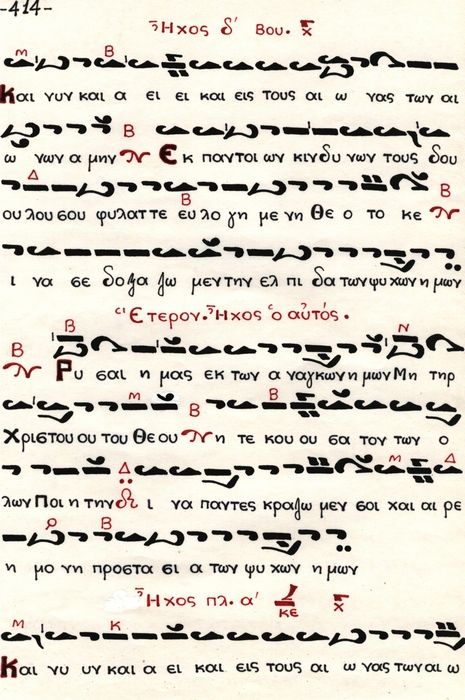 -414-
Ἦχος δ' Βου.
Και νυν και α ει ει και εις τους αι ω νας των αι
ω νων α μην Εκ παντοι ων κινδυ νων τους δου
ου λου σου φυλαττε ευ λο γη με νη Θε ο το κε
ι να σε δοξα ζω μεν την ελ πι δα των ψυ χων η μων
Ἕτερον. Ἦχος ὁ αὐτός.
Ρυ σαι η μας εκ των α ναγκων η μων Μη τηρ
Χριστου ου του Θε ου η τε κου ου σα τον των ο
λων Ποι η την ι να παντες κραζω μεν σοι χαι αι ρε
η μο νη προστα σι α των ψυ χων η μων
Ἦχος πλ. α' κε
Και νυ υν και α ει και εις τους αι ω νας των αι ω